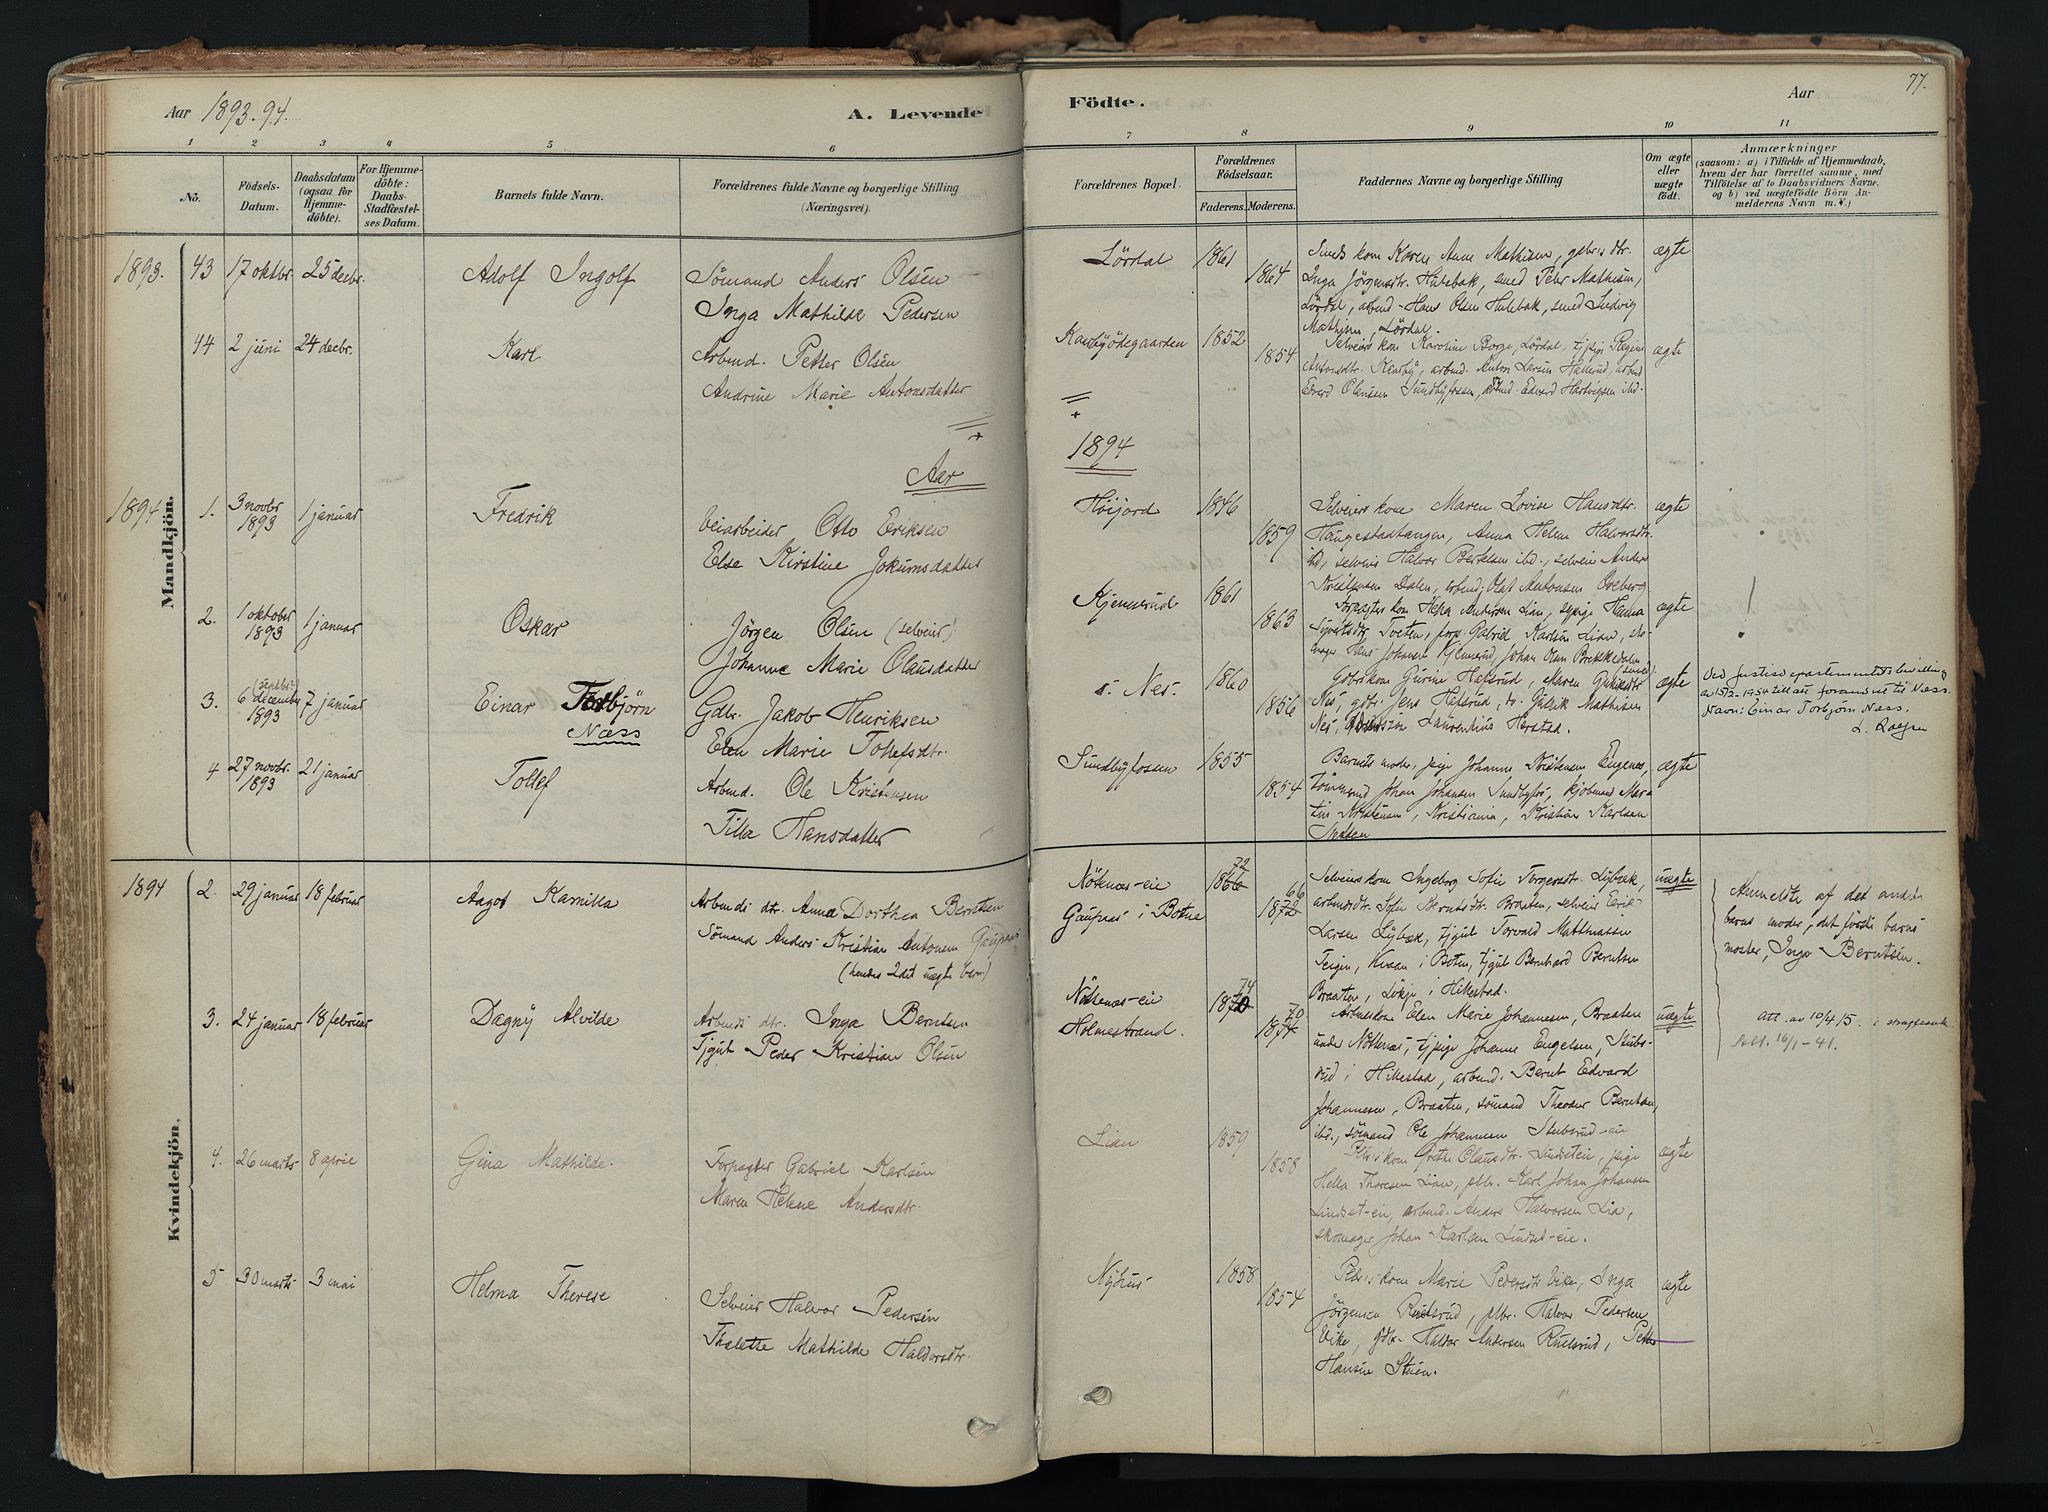 Aar 1893.94.
A. Levende
Födte.
Aar
77.
1 2 3 4 5 6 7 8 9 10 11
No.
Födsels-
Datum.
Daabsdatum
(ogsaa for
Hjemme-
döbte).
For Hjemme-
döbte:
Daabs-
Stadfæstel-
ses Datum.
Barnets fulde Navn.
Forældrenes fulde Navne og borgerlige Stilling
(Næringsvei).
Forældrenes Bopæl.
Forældrenes
Födselsaar.
Faderens. Moderens.
Faddernes Navne og borgerlige Stilling
Om ægte
eller
uægte
födt.
Anmærkninger
(saasom: a) i Tilfælde af Hjemmedaab,
hvem der har forrettet samme, med
Tilföielse af to Daabsvidners Navne.
og b) ved uægtefödte Börn An-
melderens Navn m. V.)
Mandkjön.
1893. 43 17 oktbr. 25 decbr. Adolf Ingolf
Sömand Anders Olsen
Inga Mathilde Pedersen
Lördal 1861 1864
Smeds kom Karen Anne Mathisen, gdbr.s dtr.
Inga Jörgensdtr. Hulebak, smed Peter Mathisen,
Lördal, arbmd Hans Olsen Hulebak, smed Ludvig
Mathisen, Lördal.
ægte
44 2 juni 24 decbr. Karl
Arbmd. Petter Olsen
Andrine Marie Antonsdatter
1852 1854
Selveiers kom Karoline Borge, Lördal, tj.pige Regine
Antonsdtr. arbmd. Anton Larsen arbmd
Edvard Olaussen Sundbyfossen, Edvard Hartvigsen ibd.
ægte
Aar
1894
1894 1. 3 novbr 1893 1 januar Fredrik
Veiarbeider Otto Eriksen
Else Kirstine Jokumsdatter
Höijord 1846 1859
Selveiers kom Maren Lovise Hansdtr.
Hangestadtangen, Anna Helene Halvorsdtr.
ibd, selveier Halvor Berntsen ibd., selveier Anders
Kristensen Dalen, arbmd; Olaf Antonsen
ægte
2. 1 oktober 1893 1 januar Oskar
Jörgen Olsen (selveier)
Johanne Marie Olausdatter
Kjennerud 1861 1863
Forpagter kom Helga Andersen Lian, Hanna
Sivertsdtr. Tveten, forp. Gabriel Karlsen Lian, sko-
mager Hans Johansen Kjennerud, Johan Olsen
ægte
!
3. (septbr.) 6 december 1893 7 januar Einar Torbjörn
Næss
Gdbr. Jakob Henriksen
Elen Marie Tollefsdtr.
Nes. 1860 1856
Gdbr.s kom Gurine Hafsrud, Maren
Nes, gdbr. Jens Hafsrud, do. Gullik Mathisen
Nes, Laurenhius Herstad.
ægte
Ved Justisdepartementets bevilling
av 15/2 1934 till att forandret til Næss.
Navn: Einar Torbjørn Næss.
4 27 novbr. 1893 21 januar Tollef
Arbmd. Ole Kristensen
Tilla Hansdatter
Sundbyfossen 1855 1854
Barnets moder, pige Johanne Kristensen Engenes,
Tömmermd Johan Johansen Sundbyfos, kjöbmand Mar-
tin Kristensen, Kristiania, Kristian Karlsen
ægte
Kvindekjön.
1894 2. 29 januar 18 februar Aagot Kamilla
Arbmds dtr. Anna Dorthea Berntsen
Sömand Anders Kristian Antonsen Gaupaas
(hendes 2det uægte barn)
Nötenæs-eie
Gaupaas i Botne
1866 72
1872 66
Selveiers kom Ingeborg Sofie Torgersdtr. Lybæk,
arbmdsdtr. Sofie Berntsdtr. Braaten, selveier Eerik
Larsen Lybæk, tjgut Torvald Matthiassen
Teigen, Kvaan i Boten, tjgut Bernhard Berntsen
Braaten, Lökje i Hillestad.
uægte
Anmeldte af det andet
barns moder, det förste barns
moster, Inga Berntsen.
3. 24 januar 18 februar Dagny Alvilde
Arbmds dtr. Inga Berntsen
Tjgut Peder Kristian Olsen
Nötenæs-eie
Holmestrand.
1870 74
1874 70
Arbmdskom Elen Marie Johannesen, Braaten
under Nötenæs, tjpige Johanne Engelsen, Stubs-
rud i Hillestad, arbmd. Bernt Edvard
Johannesen, Braaten, sömand Theodor Berntsen,
ibd., sömand Ole Johannesen Stubsrud-eie
uægte
Att. av 10/4 15.
Att. 16/1 - 41.
4. 26 marts 8 april Gina Mathilde.
Forpagter Gabriel Karlsen
Maren Helene Andersdtr.
Lian 1859 1858
Pbr.s kom Grethe Olausdtr. pige
Helga Thoresen Lian, pbr. Karl Johan Johansen
Lindset-eie, arbmd. Anders Halvorsen Lia,
skomager Johan Karlsen Lindset-eie.
ægte
5 30 marts 3 mai Helma Therese
Selveier Halvor Pedersen
Thalette Mathilde Haldorsdtr.
Nyhus 1858 1854
Pbr.s kom Marie Pedersdtr Vike, Inga
Jörgensen Ruelsrud, pbr. Halvor Pedersen
Vike, gdbr. Haldor Andersen Ruelsrud, Petter
Hansen Stuen.
ægte